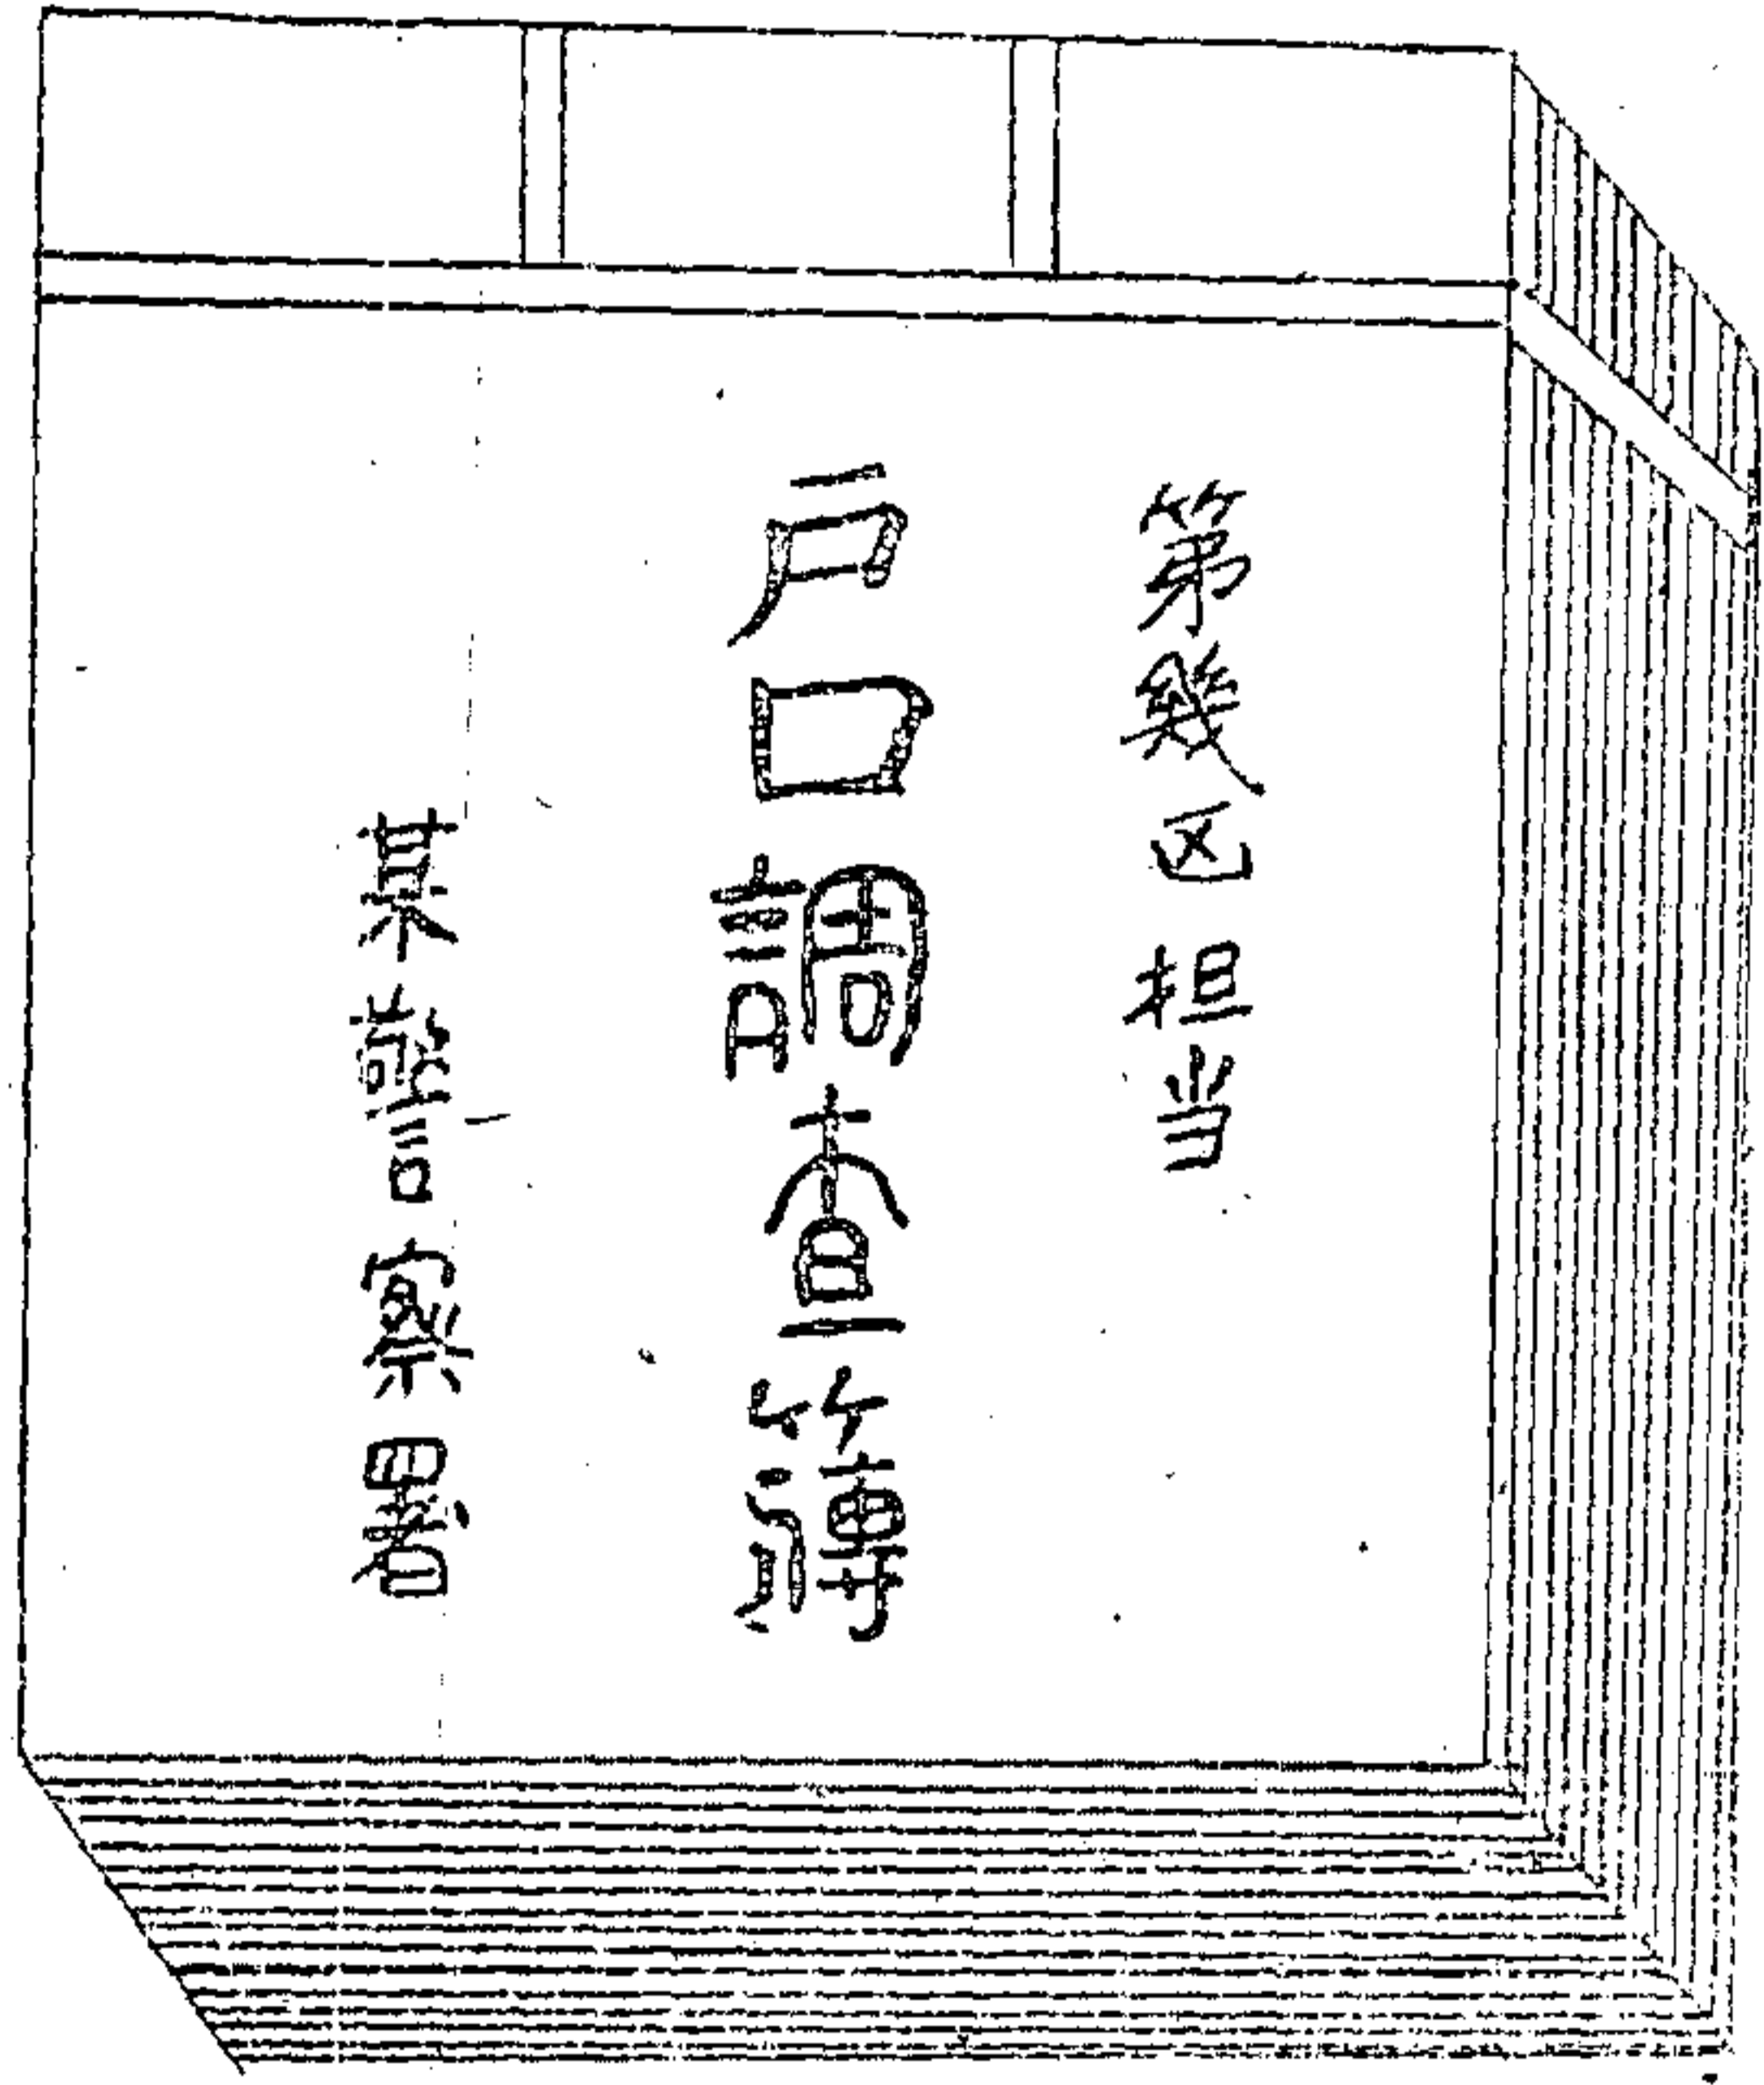 第幾区担当
戸口調査簿
某警察署